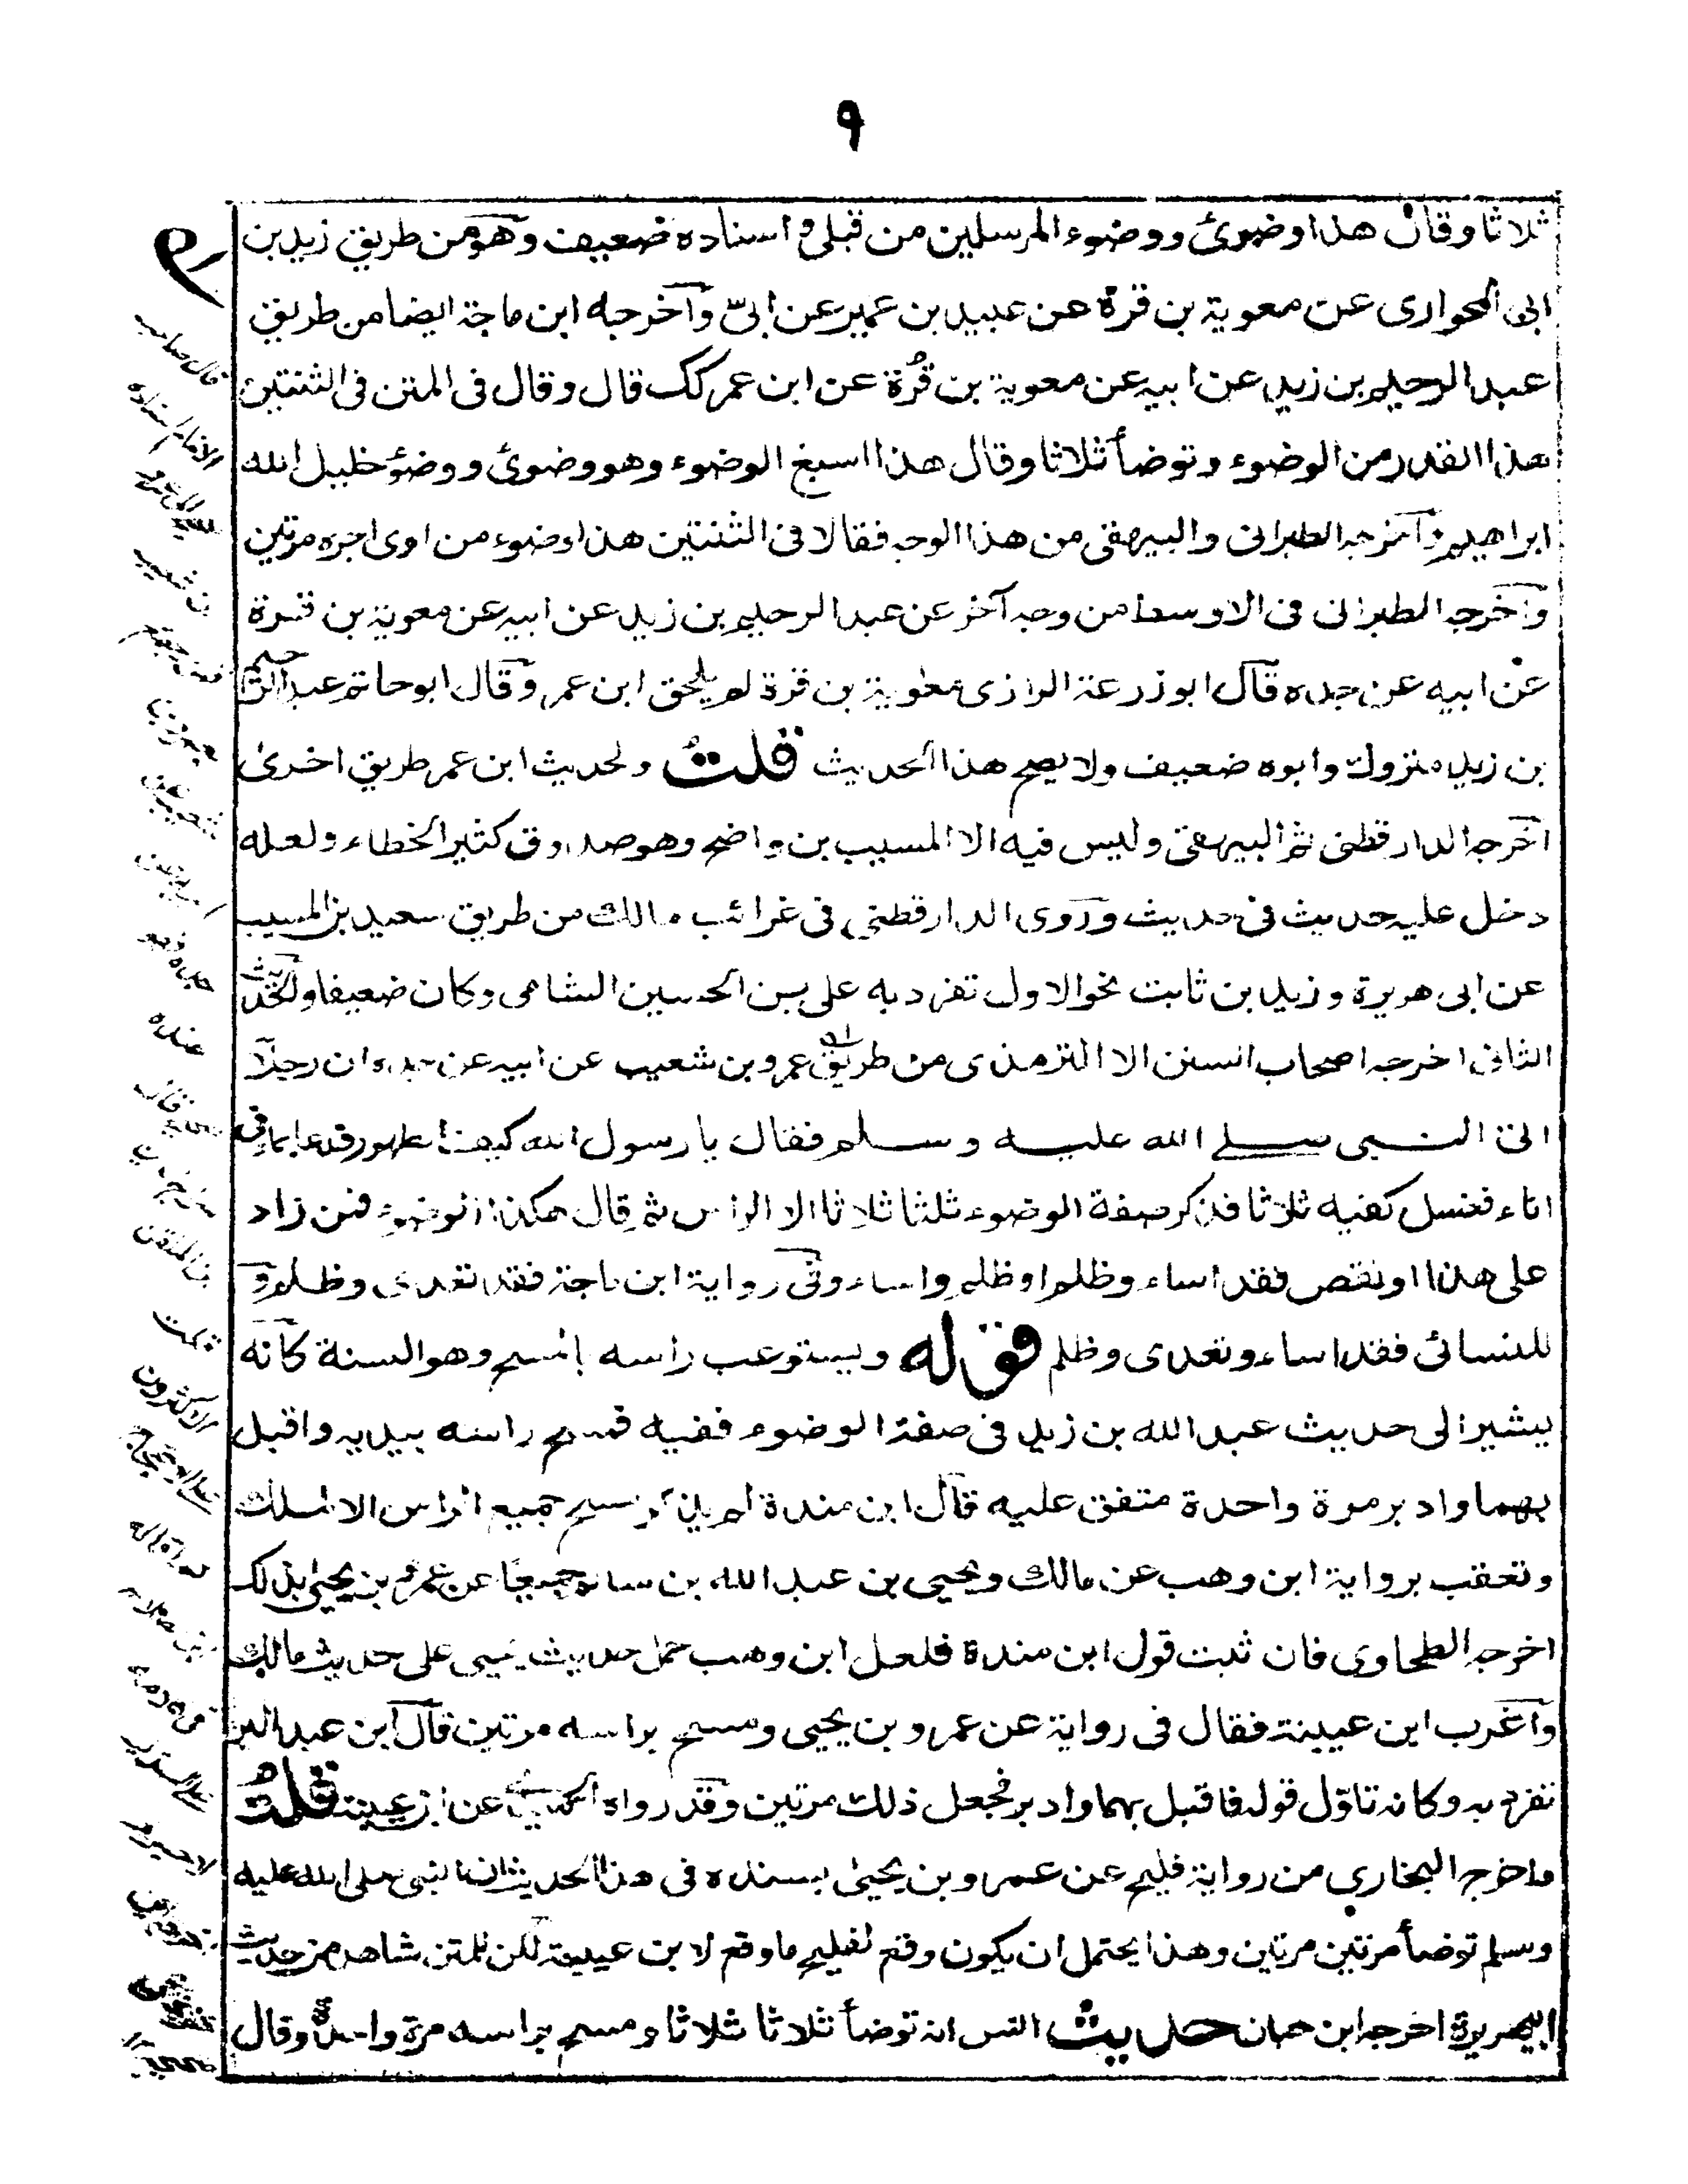 ٩
ثلاثا وقال هذا وضوئ ووضوء المرسلين من قبلى و اسناده ضعيف وهو من طريق زيد بن
ابى الحوارى عن معوية بن قرة عن عبيد بن عمير عن ابىّ وآخرجه ابن ماجة ايضا من طريق
عبد الرحيم بن زيد عن ابيه عن معوية بن قُرّة عن ابن عمر كك قال وقال فى المتن فى الثنتين
هذا القدر من الوضوء وتوضأ ثلاثا وقال هذا اسبغ الوضوء وهو وضوئ ووضؤ خليل الله
ابراهيم وآخرجه الطبرانى والبيهقى من هذا الوجه فقالا فى الثنتين هذا وضوء من اوى اجره مرتين
وآخرجه الطبرانى فى الاوسط من وجه آخر عن عبد الرحيم بن زيد عن ابيه عن معوية بن قرة
عن ابيه عن جده قال ابو زرعة الرازى معوية بن قرة لم يلحق ابن عمر وقال ابو حاتم عبد الرحيم
بن زيد متروك وابوه ضعيف ولا يصح هذا الحديث قلت ولحديث ابن عمر طريق اخرىٰ
اخرجه الدارقطنى ثم البيهقى وليس فيه الا المسيب بن واضح وهو صدوق كثير الخطاء ولعله
دخل عليه حديث فى حديث وروى الدارقطنى فى غرائب مالك من طريق سعيد بن المسيب
عن ابى هريرة وزيد بن ثابت نحو الاول تفرد به على بن الحسين الشامى وكان ضعيفا والحديث
الثانى اخرجه اصحاب السنن الا الترمذى من طريق عمرو بن شعيب عن ابيه عن جده ان رجلا
اتى النبى صلے الله عليه وسلم فقال يا رسول الله كيف الطهور فدعا بماء فى
اناء فغسل كفيه ثلاثا فذكر صفة الوضوء ثلثا ثلاثا الا الراس ثم قال هكذا الوضوء فمن زاد
على هذا او نقص فقد اساء وظلم او ظلم واساء وفى رواية ابن ماجة فقد تعدى وظلم و
للنسائى فقد اساء وتعدى وظلم قوله ويستوعب راسه بالمسح وهو السنة كانه
يشير الى حديث عبد الله بن زيد فى صفة الوضوء ففيه فمسح راسه بيديه واقبل
بهما وادبر مرة واحدة متفق عليه قال ابن مندة لم يذكر مسح جميع الراس الا لمالك
وتعقب برواية ابن وهب عن مالك ويحيى بن عبد الله بن سالم جميعًا عن عمرو بن يحيىٰ بذلك
اخرجه الطحاوى فان ثبت قول ابن مندة فلعل ابن وهب حمل حديث يحيى على حديث مالك
وآغرب ابن عيينة فقال فى رواية عن عمرو بن يحيى ومسح براسه مرتين قال ابن عبد البر
تفرد به وكانه تاوّل قوله فاقبل بهما وادبر فجعل ذلك مرتين وقد رواه الحميدى عن ابن عيينة قلت
واخرج البخارى من رواية فليح عن عمرو بن يحيىٰ بسنده فى هذا الحديث ان النبى صلى الله عليه
وسلم توضأ مرتين مرتين وهذا يحتمل ان يكون وقع لفليح ما وقع لابن عيينة لكن للمتن شاهد من حديث
ابى هريرة اخرجه ابن حبان حديث انس انه توضأ ثلاثا ثلاثا ومسح براسه مرة واحدة وقال
بن شعيب
عنده
الاكثرون